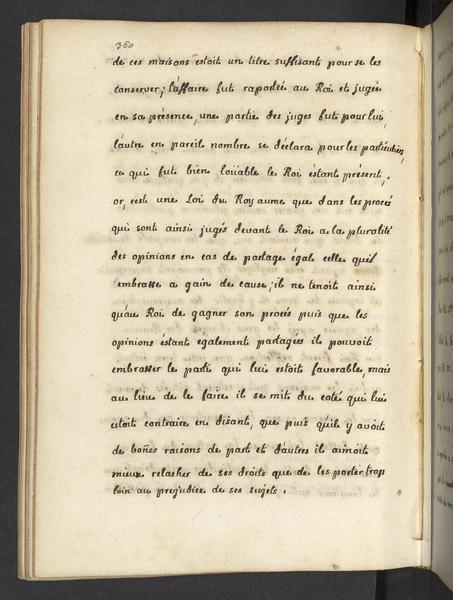 360
de ces maisons estoit un titre suffisant pour se les
conserver; l'affaire fut raportée au Roi et jugée
en sa présence, une partie des juges fut pour lui,
l'autre en pareil nombre se déclara pour les particuliers,
ce qui fut bien loüable le Roi èstant présent,
or, c'est une Loi du Royaume que dans les procés
qui sont ainsi jugés devant le Roi a la pluralité
des opinions en cas de partage égal celle qu'il
embrasse a gain de cause; il ne tenoit ainsi
qu'au Roi de gagner son procés puis que les
opinions èstant également partagées il pouvoit
embrasser le parti qui lui estoit favorable, mais
au lieu de le faire il se mit du coté qui lui
estoit contraire en disant, que puis qu'il y avoit
de boñes raisons de part et d'autres il aimoit
mieux relacher de ses droits que de les porter trop
loin au prejudice de ses sujets.